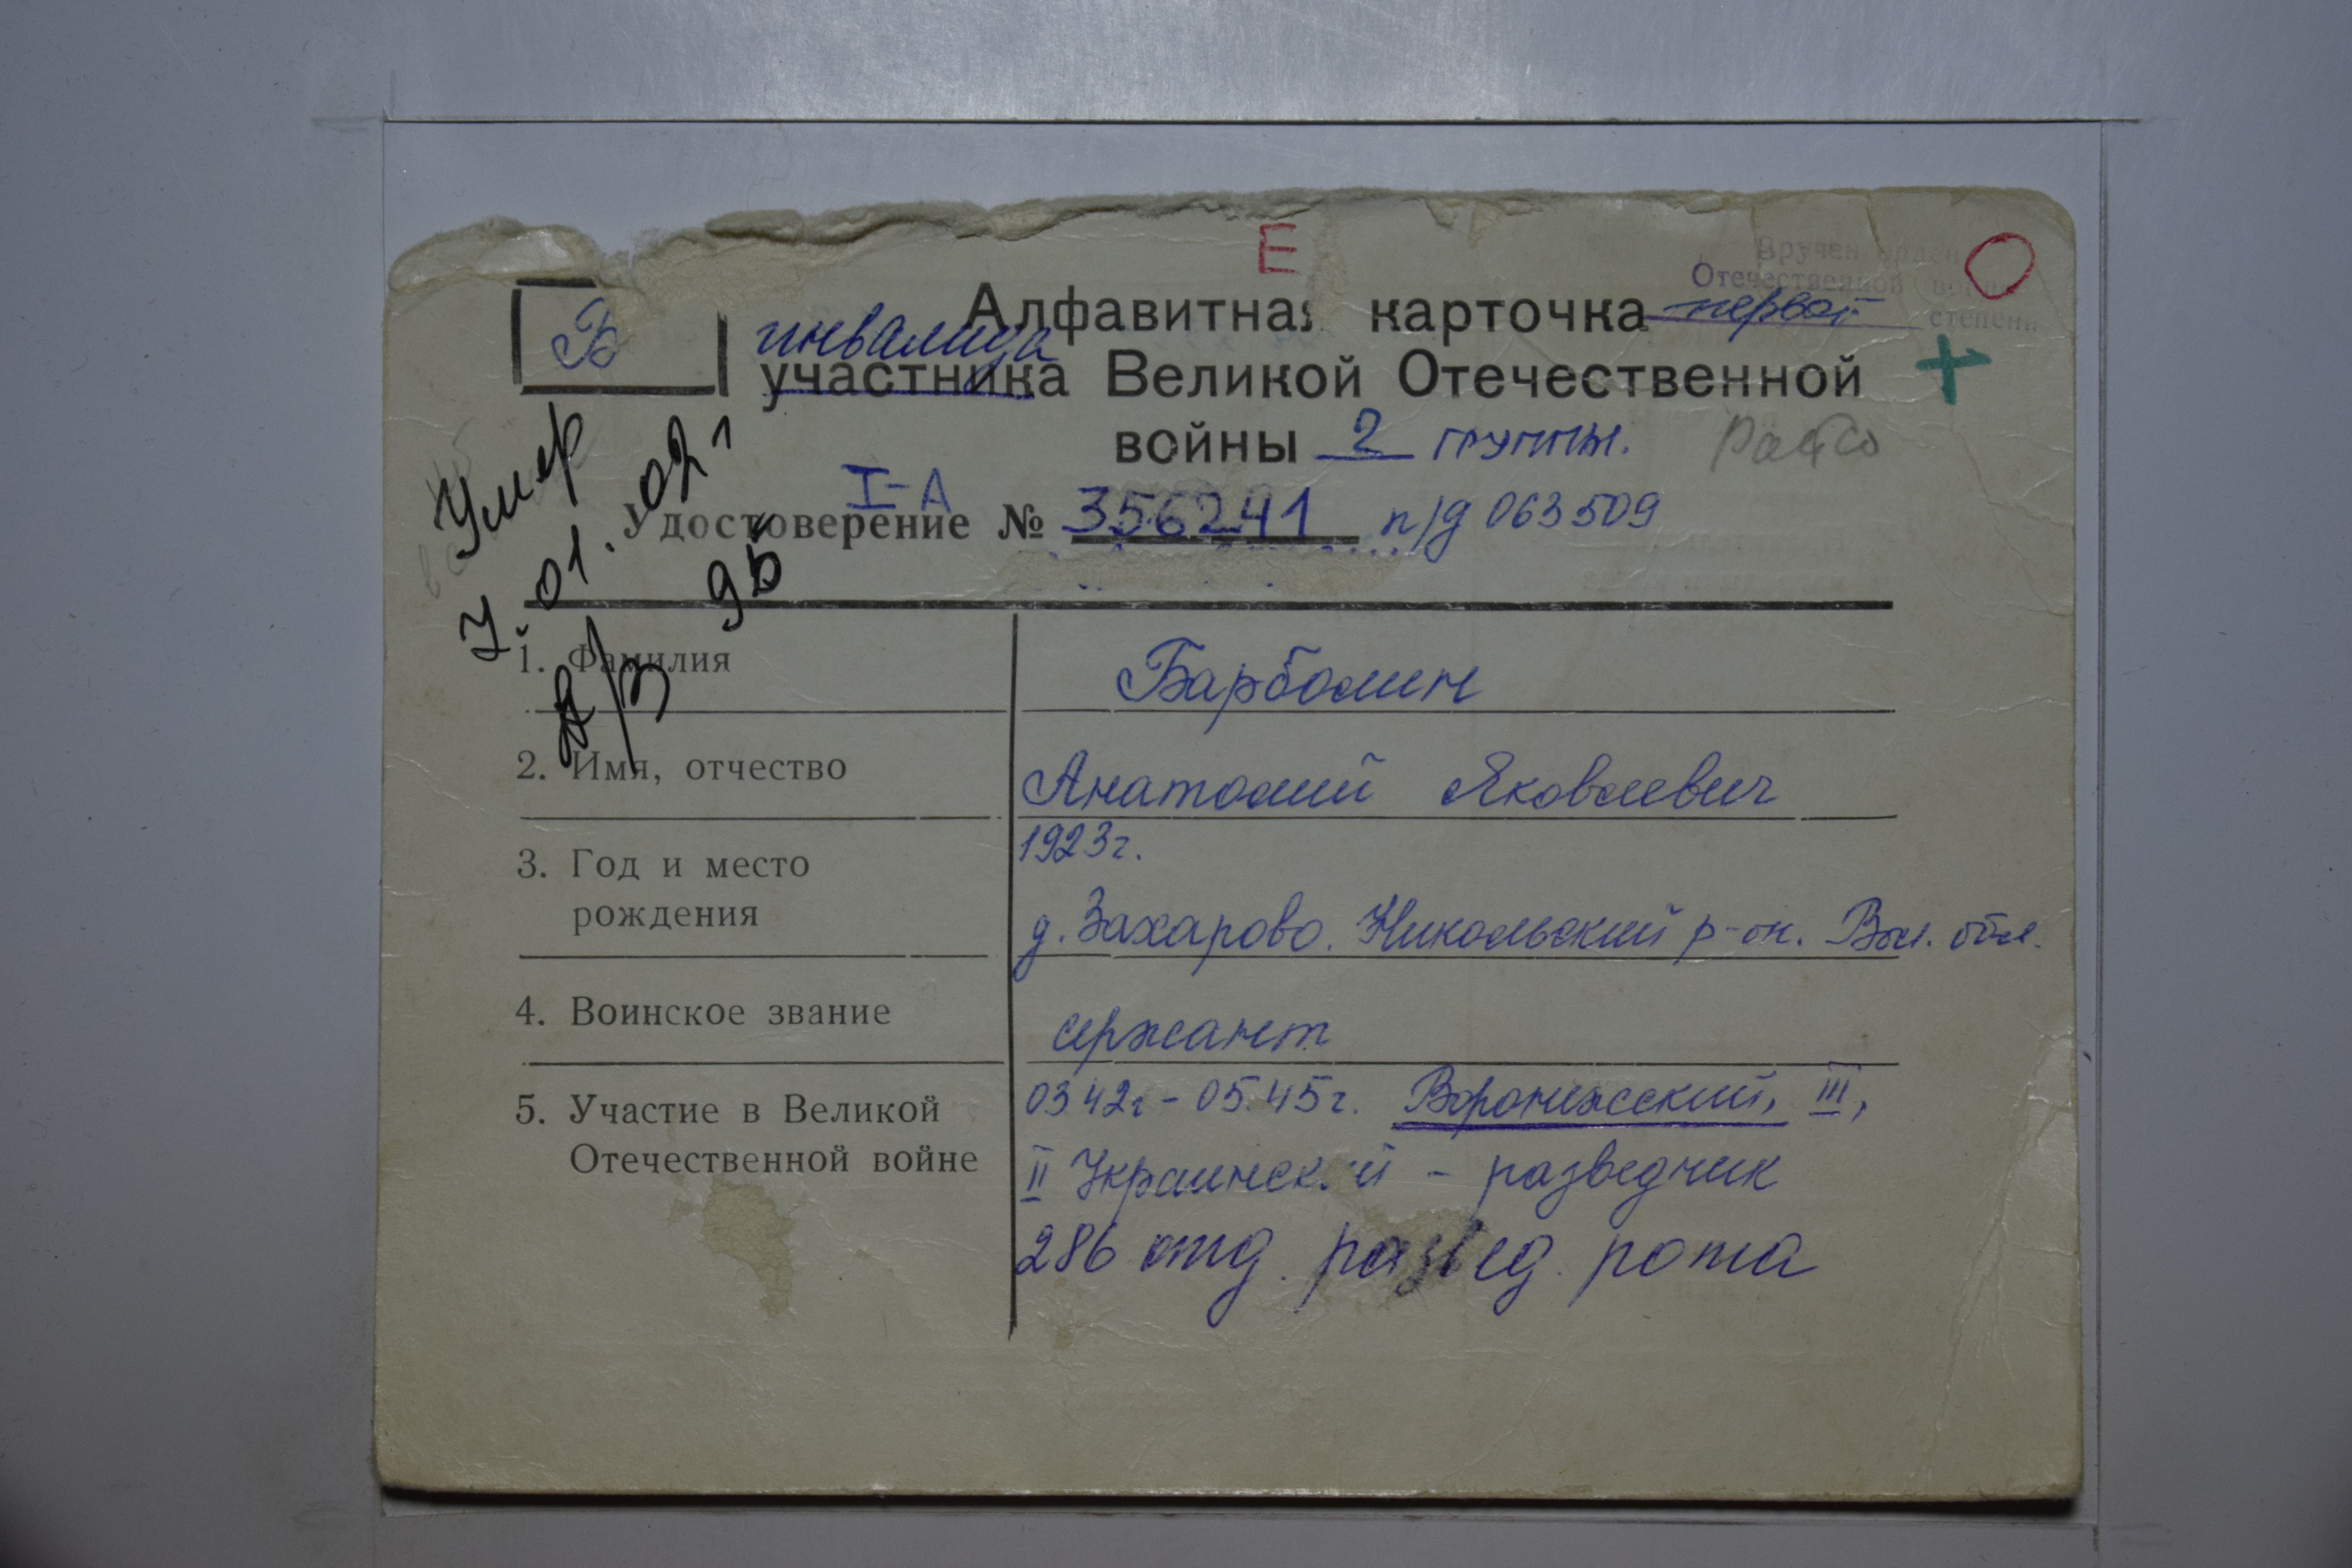 Е
Вручен орден
Отечественной войны
первой степени
Б
Алфавитная карточка
инвалида
участника Великой Отечественной
войны 2 группы.
I-А
Удостоверение № 356241 п/д 063509
Умер
01.02
1. Фамилия Барболин
2. Имя, отчество Анатолий Яковлевич
3. Год и место 1923г.
рождения д. Захарово. Никольский р-он. Вол. обл.
4. Воинское звание сержант
5. Участие в Великой 03 42г - 05.45г. Воронежский, III,
Отечественной войне II Украинский - разведчик
286 отд. развед. рота